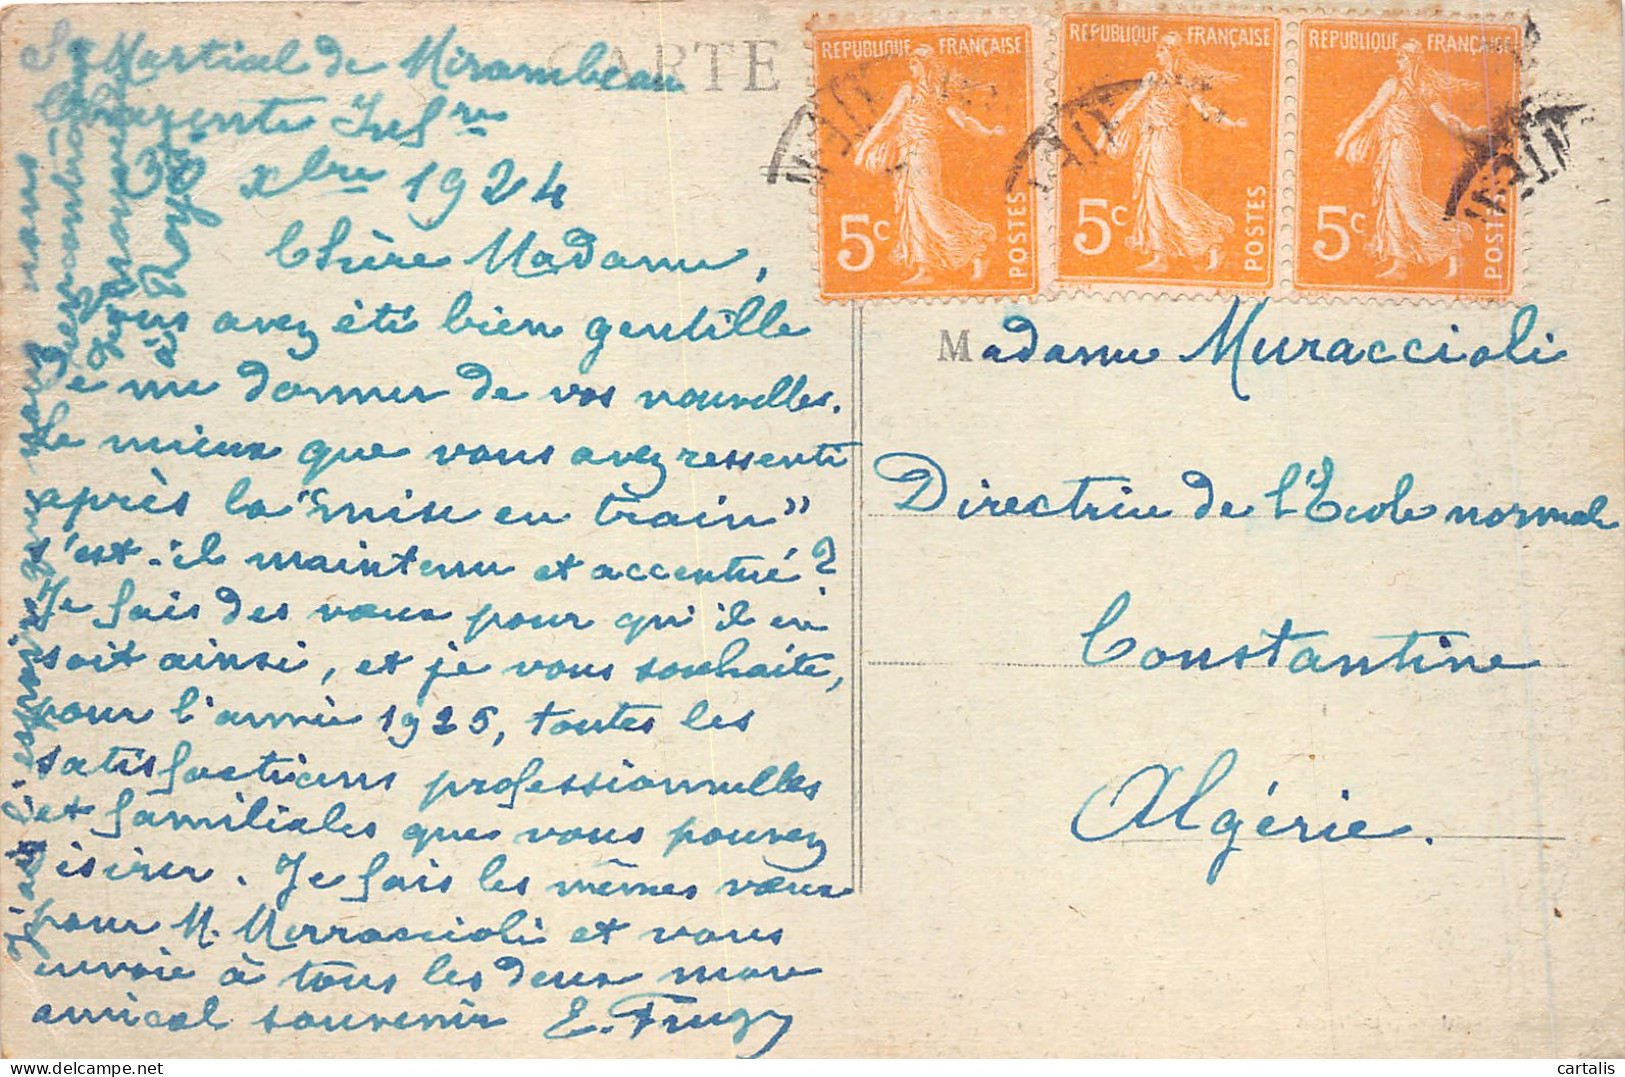 CARTE
St Martial de Mirambeau
Charente Infre
30 xbre 1924
Chère Madame,
Vous avez été bien gentille
de me donner de vos nouvelles.
Le mieux que vous avez ressenti
après la "mise en train"
s'est-il maintenu et accentué?
Je fais des vœux pour qu'il en
soit ainsi, et je vous souhaite,
pour l'année 1925, toutes les
satisfactions professionnelles
et familiales que vous pouvez
désirer. Je fais les mêmes vœux
pour M. Murraccioli et vous
envoie à tous les deux mon
amical souvenir E. Frugy
J'ai l'espoir que nous nous
retrouverons
à Royan
REPUBLIQUE FRANÇAISE
5c
POSTES
REPUBLIQUE FRANÇAISE
5c
POSTES
REPUBLIQUE FRANÇAISE
5c
POSTES
Madame Muraccioli
Directrice de l'École normale
Constantine
Algérie.
cartalis